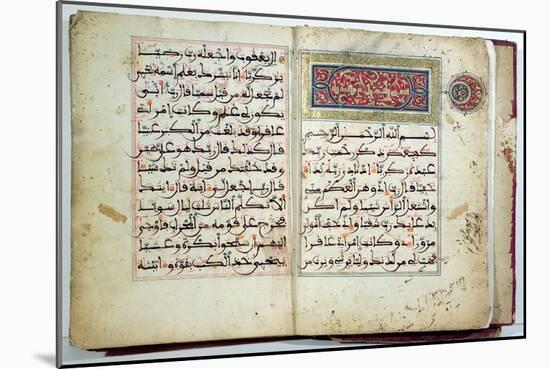 بسم الله الرحمن الرحيم
كهيعص ذكر رحمت ربك عبده
زكريا اذ نادى ربه نداء
خفيا قال رب اني وهن العظم مني
واشتعل الراس شيبا ولم اكن
بدعائك رب شقيا واني خفت الموالي
من وراءي وكانت امراتي عاقرا
فهب لي من لدنك وليا يرثني ويرث من
ال يعقوب واجعله رب رضيا
يزكريا انا نبشرك بغلم اسمه يحيى
لم نجعل له من قبل سميا قال رب انى
يكون لي غلم وكانت امراتي
عاقرا وقد بلغت من الكبر عتيا
قال كذلك قال ربك هو علي هين
وقد خلقتك من قبل ولم تك شيئا
قال رب اجعل لي اية قال ايتك
الا تكلم الناس ثلث ليال سويا
فخرج على قومه من المحراب فاوحى
اليهم ان سبحوا بكرة وعشيا
ييحيى خذ الكتب بقوة واتينه